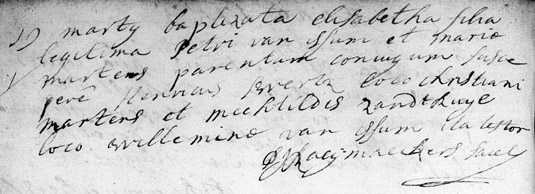 D marty baptizata elisabetha filia
legitima Petri van Issum et marie
martens parentum coniugum susce
pere swertz loco christiani
martens et mechtildis zandthuye
loco willemine van Issum ita testor